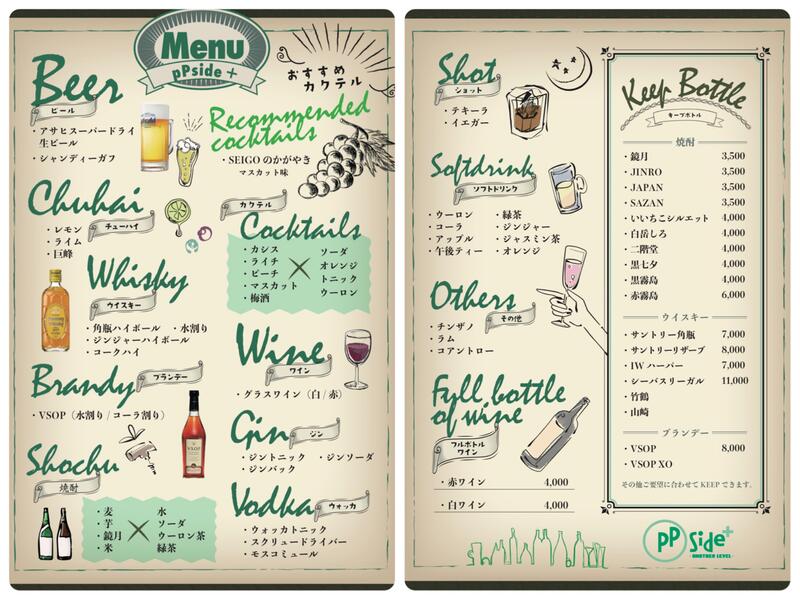 Menu
pPside +
おすすめ
カクテル
Beer
ビール
・アサヒスーパードライ
生ビール
・シャンディーガフ
Recommended
cocktails
・SEIGO のかがやき
マスカット味
Chuhai
チューハイ
・レモン
・ライム
・巨峰
カクテル
Cocktails
・カシス
・ライチ
・ピーチ
・マスカット
・梅酒
×
ソーダ
オレンジ
トニック
ウーロン
Whisky
ウイスキー
・角瓶ハイボール ・水割り
・ジンジャーハイボール
・コークハイ
Wine
ワイン
・グラスワイン（白 / 赤）
Brandy
ブランデー
・VSOP（水割り / コーラ割り）
V.S.O.P
Gin
ジン
・ジントニック ・ジンソーダ
・ジンバック
Shochu
焼酎
・麦
・芋
・鏡月
・米
×
水
ソーダ
ウーロン茶
緑茶
Vodka
ウォッカ
・ウォッカトニック
・スクリュードライバー
・モスコミュール
Shot
ショット
・テキーラ
・イエガー
Softdrink
ソフトドリンク
・ウーロン ・緑茶
・コーラ ・ジンジャー
・アップル ・ジャスミン茶
・午後ティー ・オレンジ
Others
その他
・チンザノ
・ラム
・コアントロー
Full bottle
of wine
フルボトル
ワイン
・赤ワイン 4,000
・白ワイン 4,000
Keep Bottle
キープボトル
焼酎
・鏡月 3,500
・JINRO 3,500
・JAPAN 3,500
・SAZAN 3,500
・いいちこシルエット 4,000
・白岳しろ 4,000
・二階堂 4,000
・黒七夕 4,000
・黒霧島 4,000
・赤霧島 6,000
ウイスキー
・サントリー角瓶 7,000
・サントリーリザーブ 8,000
・IW ハーパー 7,000
・シーバスリーガル 11,000
・竹鶴
・山崎
ブランデー
・VSOP 8,000
・VSOP XO
その他ご要望に合わせて KEEP できます。
pP Side+
ANOTHER LEVEL